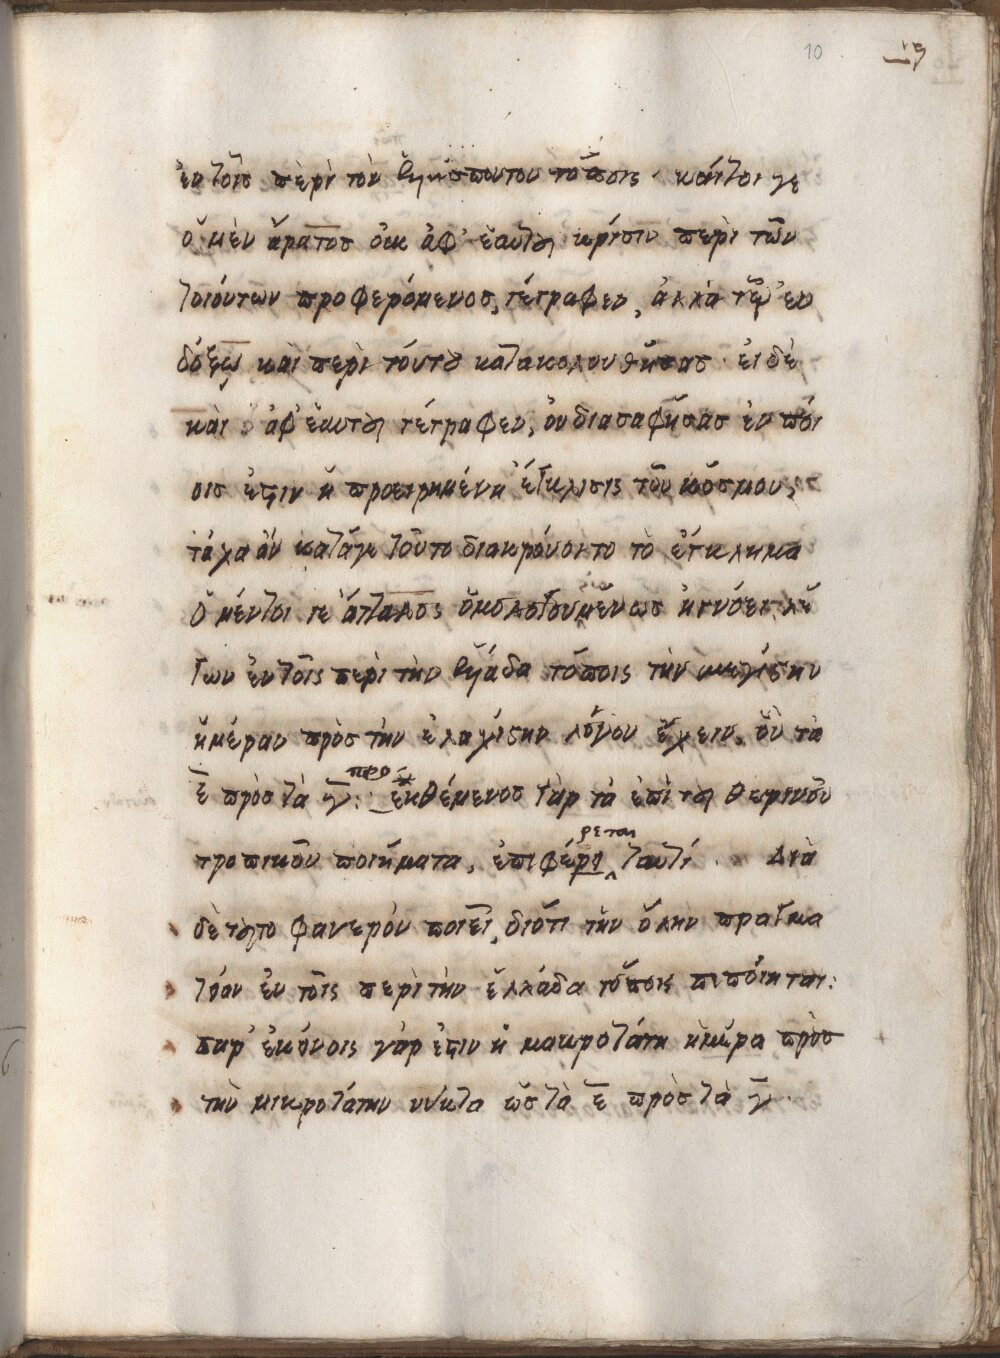 10 ις
ἐν τοῖς περὶ τὸν ἑλλήσποντον τόποις. καίτοι γε
ὁ μὲν ἄρατος οὐκ ἀφ' ἑαυτοῦ κρίσιν περὶ τῶν
τοιούτων προφερόμενος, γέγραφεν, ἀλλὰ τῷ ἐυ
δόξῳ καὶ περὶ τούτου κατακολουθήσας. εἰ δὲ
καὶ ἀφ' ἑαυτοῦ γέγραφεν, οὐ διασαφήσας ἐν ποί
οις ἐστιν ἡ προειρημένη ἔγκλισις τοῦ κόσμου,
τάχα ἂν κατάγε τοῦτο διακρούοιτο τὸ ἔγκλημα
ὁ μέντοι γε ἄτταλος ὁμολογουμένως ἠγνόει λέ
γων ἐν τοῖς περὶ τὴν ἑλλάδα τόποις τὴν μεγίστην
ἡμέραν πρὸς τὴν ἐλαχίστην λόγον ἔχειν, ὃν τὰ
ε̄ πρὸς τὰ γ̄: προ
ἐκθέμενος γὰρ τὰ ἐπὶ τοῦ θερινοῦ
τροπικοῦ ποιήματα, ἐπιφέρε ρεται ταυτί. Διὰ
δὲ τοῦτο φανερὸν ποιεῖ, διότι τὴν ὅλην πραγμα
τείαν ἐν τοῖς περὶ τὴν ἑλλάδα τόποις πεποίηται:
παρ' ἐκείνοις γάρ ἐστιν ἡ μακροτάτη ἡμέρα πρὸς
τὴν μικροτάτην νύκτα ὡς τὰ ε̄ πρὸς τὰ γ̄.